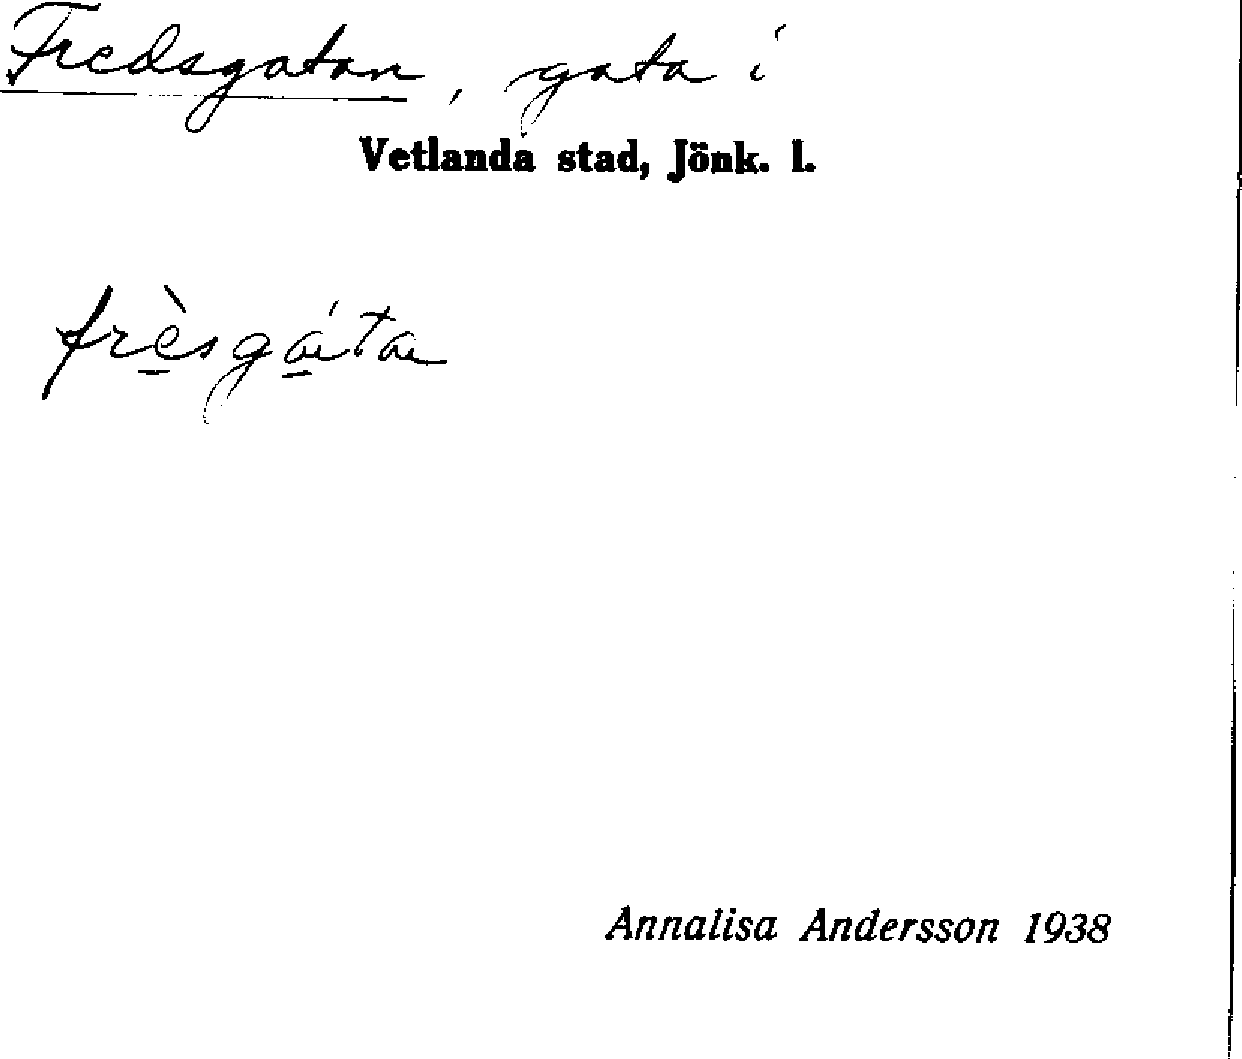 Fredsgatan, gata i
Vetlanda stad, Jönk. l.
frè̲sgá̲ta
Annalisa Andersson 1938